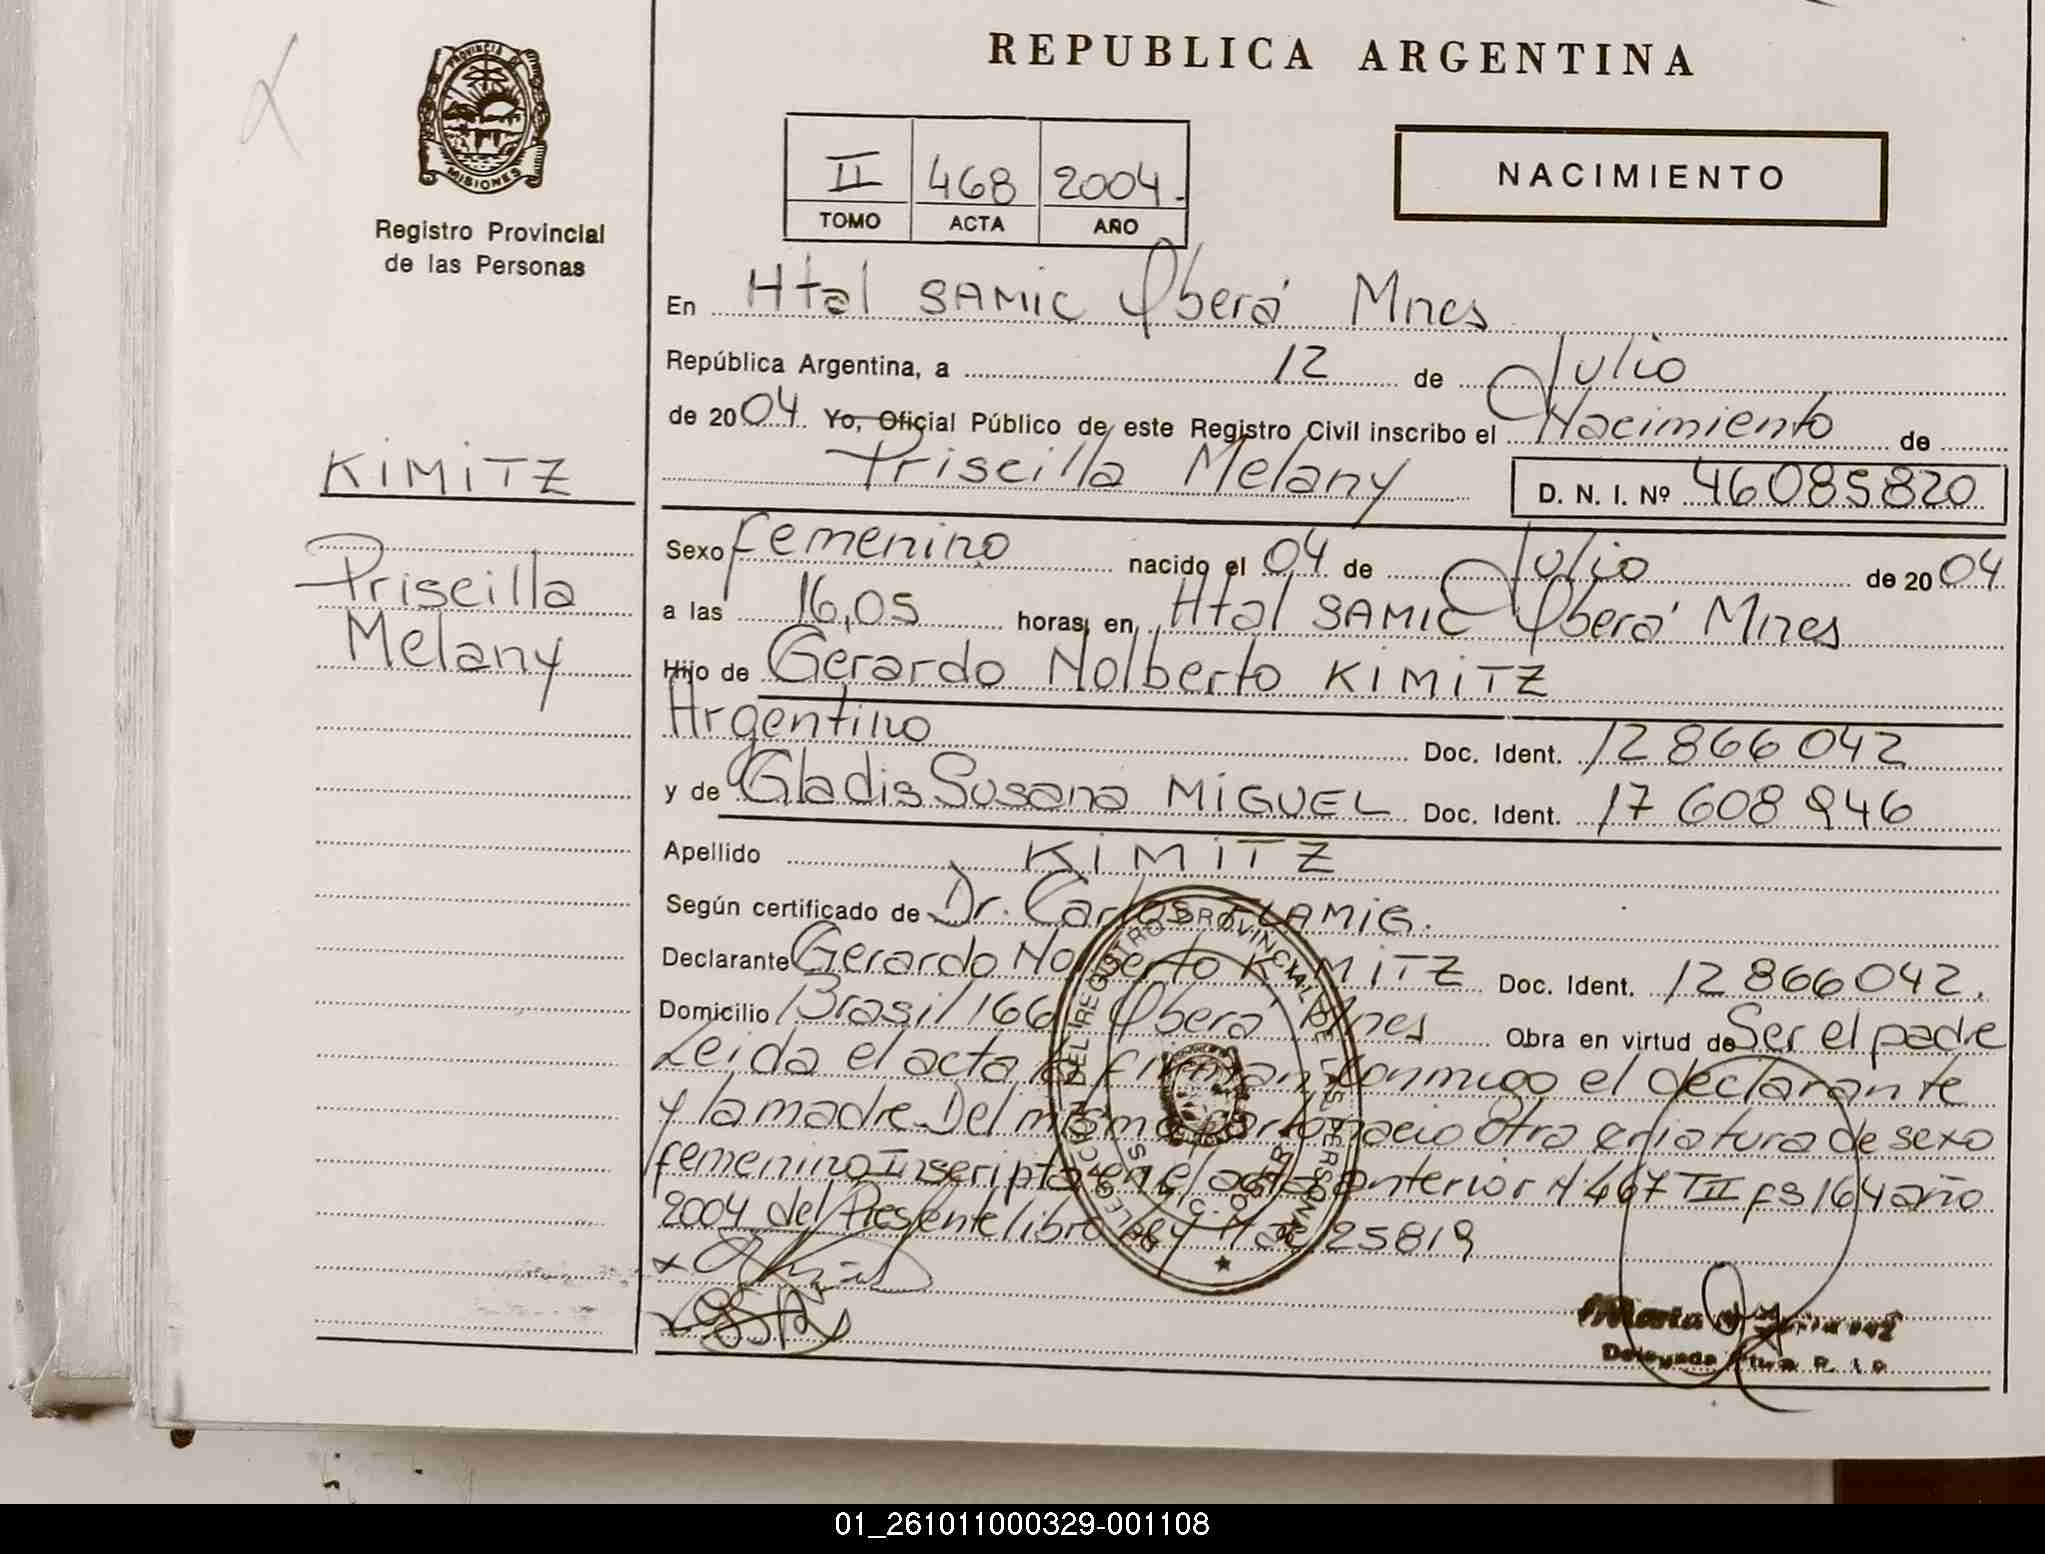 REPUBLICA ARGENTINA
PROVINCIA DE
MISIONES
Registro Provincial
de las Personas
II 468 2004.-
TOMO ACTA AÑO
NACIMIENTO
En Htal SAMIC Oberá Mnes
República Argentina, a 12 de Julio
de 2004. Yo, Oficial Público de este Registro Civil inscribo el Nacimiento de
Priscilla Melany D. N. I. Nº 46085820
KIMITZ
Priscilla
Melany
Sexo femenino nacido el 04 de Julio de 2004
a las 16,05 horas, en Htal SAMIC Oberá Mnes
Hijo de Gerardo Nolberto KIMITZ
Argentino Doc. Ident. 12866042
y de Gladis Susana MIGUEL Doc. Ident. 17 608 946
Apellido KIMITZ
Según certificado de Dr. Carlos
Declarante Gerardo Nolberto KIMITZ Doc. Ident. 12866042.
Domicilio Brasil 166 Oberá Mnes Obra en virtud de Ser el padre
Leida el acta la firman conmigo el declarante
y la madre. Del mismo parto nacio otra criatura de sexo
femenino Inscripta en el acta anterior Nº 467 TII fs 164 año
2004 del Presente libro Ley Nac 25819
DELEGACION DEL REGISTRO PROVINCIAL DE LAS PERSONAS
Maria
Delegada
01_261011000329-001108